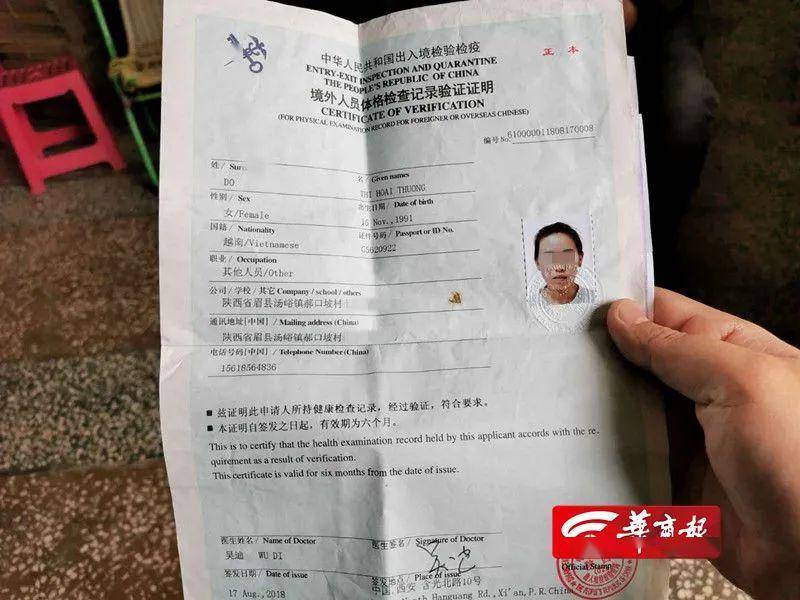 中华人民共和国出入境检验检疫
ENTRY-EXIT INSPECTION AND QUARANTINE
THE PEOPLE'S REPUBLIC OF CHINA
正 本
境外人员体格检查记录验证证明
CERTIFICATE OF VERIFICATION
(FOR PHYSICAL EXAMINATION RECORD FOR FOREIGNER OR OVERSEAS CHINESE)
编号No. 610000011808170008
姓/ 名/ Given names
DO THI HOAI THUONG
性别/ Sex 出生日期/ Date of birth
女/Female 15 Nov., 1991
国籍/ Nationality 证件号码/ Passport or ID No.
越南/Vietnamese G5620922
职业/ Occupation
其他人员/Other
公司/学校/其它 Company / school / others
陕西省眉县汤峪镇郝口坡村
通讯地址[中国]/ Mailing address (China)
陕西省眉县汤峪镇郝口坡村
电话号码[中国]/ Telephone Number (China)
15618564836
■ 兹证明此申请人所持健康检查记录，经过验证，符合要求。
■ 本证明自签发之日起，有效期为六个月。
This is to certify that the health examination record held by this applicant accords with the re-
quirement as a result of verification.
This certificate is valid for six months from the date of issue.
医生姓名/ Name of Doctor 医生签名/ Signature of Doctor
吴迪 WU DI
華商報
签发日期/ Date of issue 签发地点/ Place of issue
Official Stamp
17 Aug., 2018 中国.西安 含光北路10号
North Hanguang Rd., Xi'an, P.R.China